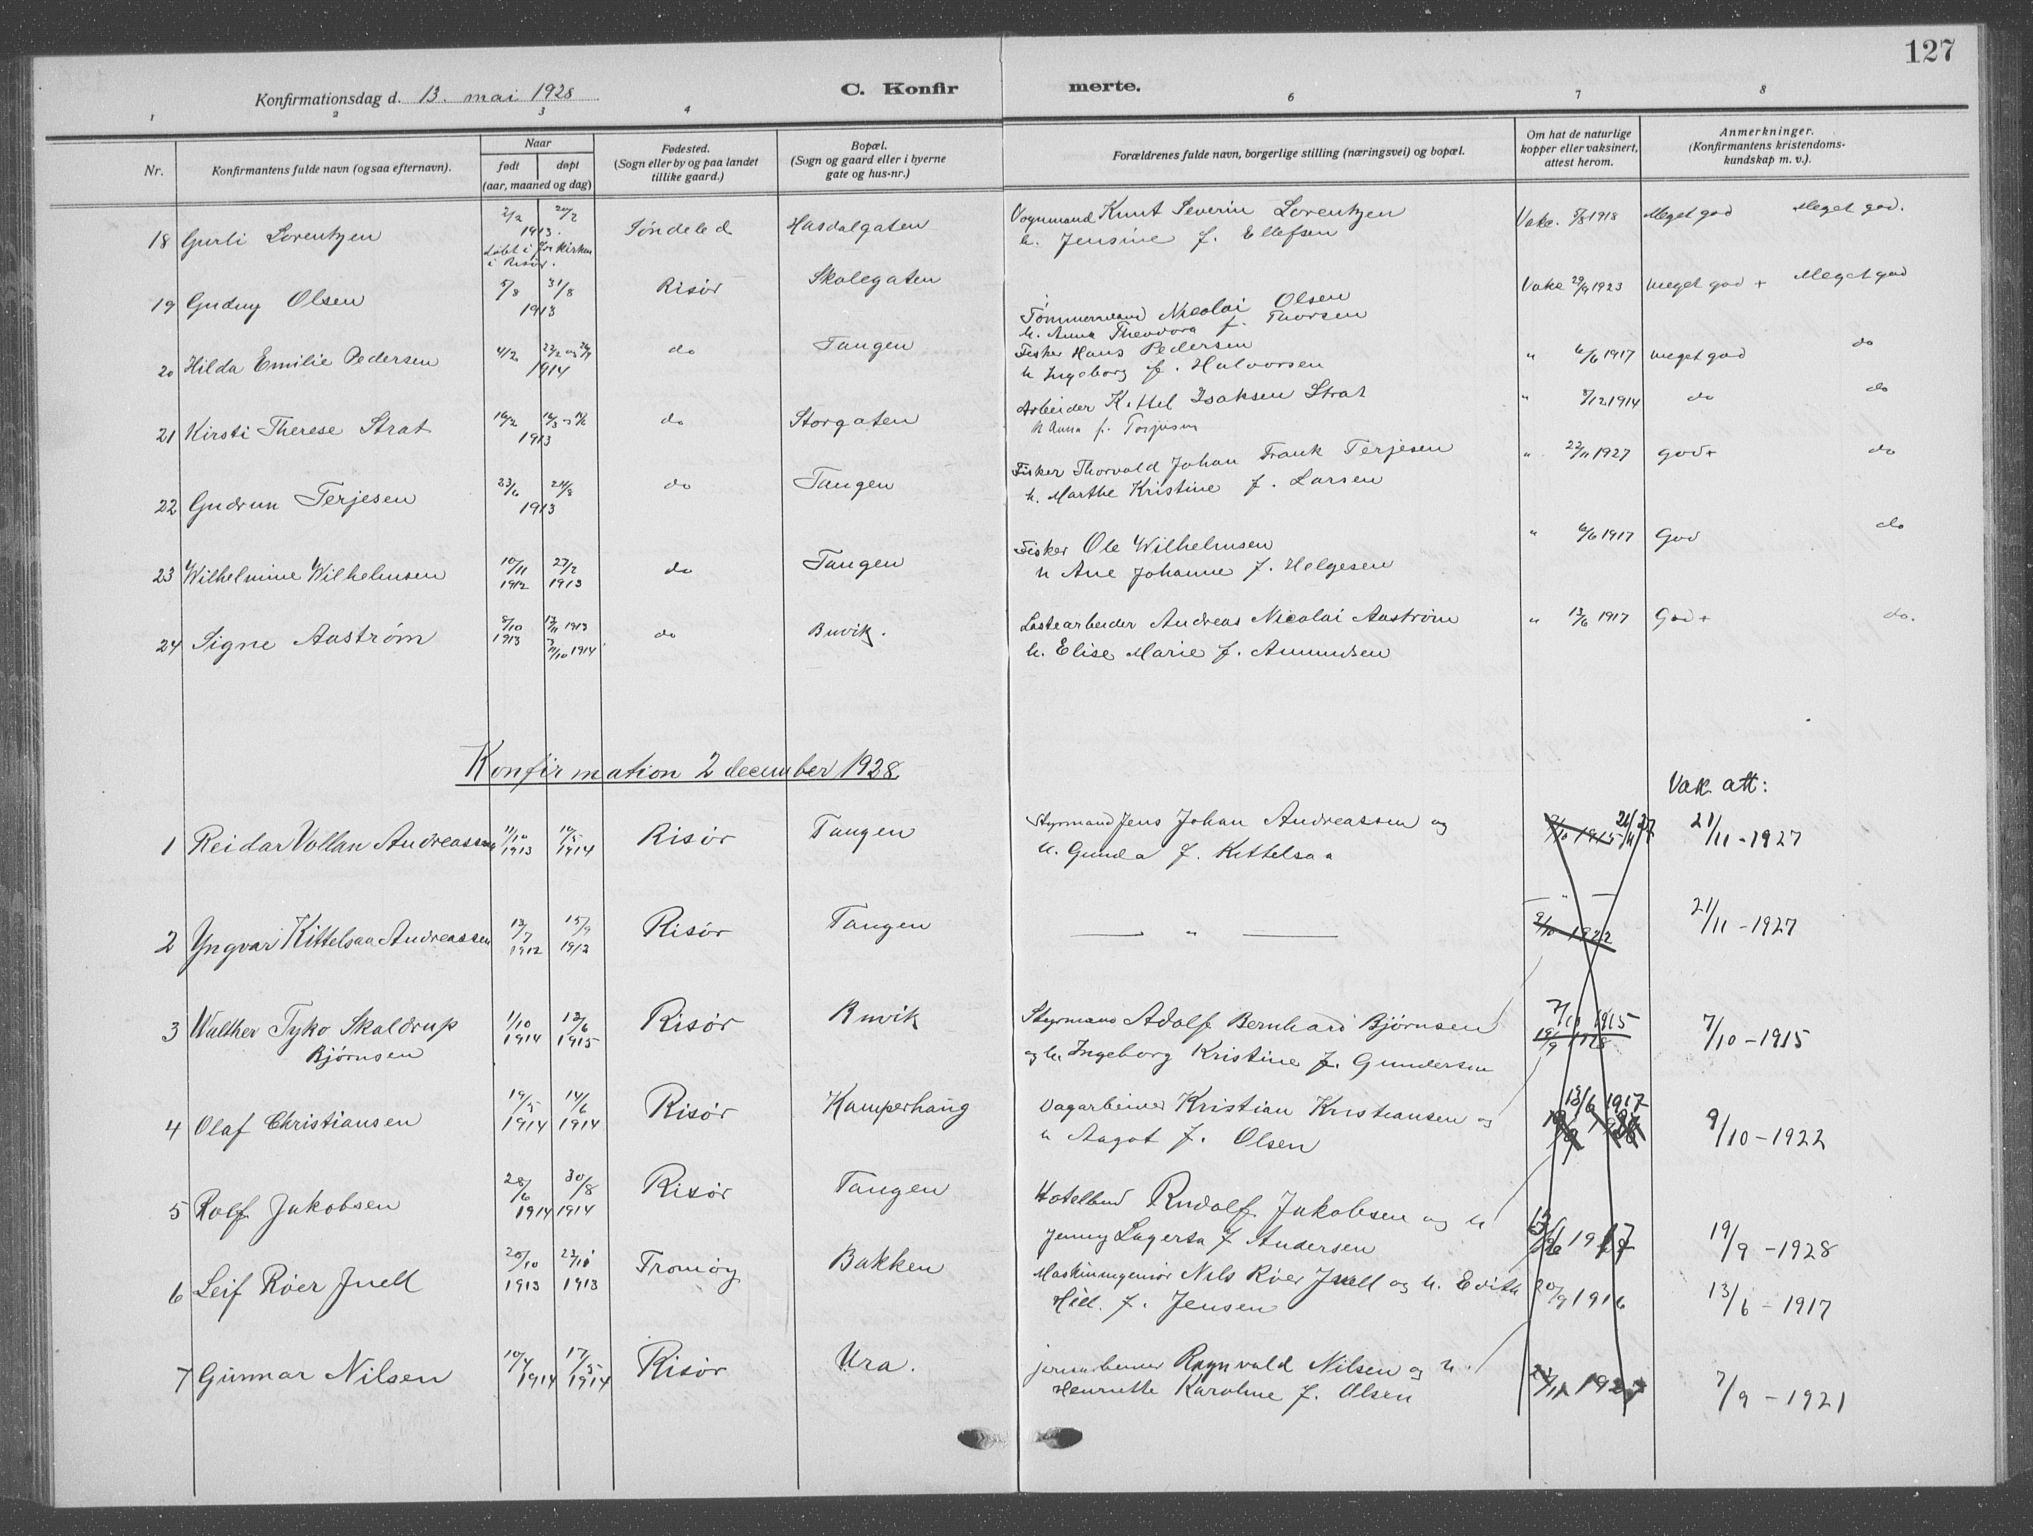 127
Konfirmationsdag d. 13. mai 1928
C. Konfirmerte.
1 2 3 4 6 7 8
Nr.
Konfirmantens fulde navn (ogsaa efternavn).
Naar
født døpt
(aar, maaned og dag)
Fødested.
(Sogn eller by og paa landet
tillike gaard.)
Bopæl.
(Sogn og gaard eller i byerne
gate og hus-nr.)
Forældrenes fulde navn, borgerlige stilling (næringsvei) og bopæl.
Om hat de naturlige
kopper eller vaksinert,
attest herom.
Anmerkninger.
(Konfirmantens kristendoms-
kundskap m. v.)
18 Gurli Lorentzen 2/2 20/2 Søndeled Hasdalgaten Vognmand Knut Severin Lorentzen Vake. 5/8 1918 Meget god Meget god.
1913. h. Jensine f. Ellefsen
døbt i kirken
i Risør.
19 Gudny Olsen 5/8 31/8 Risør Skolegaten Tømmermand Nicolai Olsen Vake 29/9 1923 meget god + Meget god
1913 h. Anna Theodora f. Thorsen
20 Hilda Emilie Pedersen 4/2 do Tangen Fisker Hans Pedersen " 6/6 1917 meget god do
1914 h Ingeborg f. Halvorsen
21 Kirsti Therese Strat 16/2 do Storgaten Arbeider Kittel Isaksen Strat " 8/12 1914 do do
1913 h Anna f. Terjesen
22 Gudrun Terjesen 23/6 24/8 do Tangen Fisker Thorvald Johan Frank Terjesen " 22/11 1927 god + do
1913 h. Marthe Kristine f. Larsen
23 Wilhelmine Wilhelmsen 10/11 27/2 do Tangen Fisker Ole Wilhelmsen " 6/6 1917 God do
1912 1913 h Ane Johanne f. Helgesen
24 Signe Aastrøm 8/10 1913 do Buvik. Lastearbeider Andreas Nicolai Aastrøm " 13/6 1917 God + do.
1913 11/10 1914 h. Elise Marie f. Amundsen
Konfirmation 2 december 1928.
Vak att:
1 Reidar Vollan Andreassen 11/10 10/5 Risør Tangen Styrmand Jens Johan Andreassen og 21/11 - 1927
1913 1914 h. Gunda f. Kittelsaa
2 Yngvar Kittelsaa Andreassen 13/7 15/9 Risør Tangen — " — 9/10 1922 21/11 - 1927
1912 1912
3 Walther Tyko Skaldrup 1/10 13/6 Risør Buvik Styrmand Adolf Bernhard Bjørnsen 7/10 1915 7/10 - 1915
Bjørnsen 1914 1915 og h. Ingeborg Kristine f. Gundersen
4 Olaf Christiansen 19/5 14/6 Risør Kamperhaug Kristian Kristiansen og 13/6 1917 9/10 - 1922
1914 1914 h Aagot f. Olsen
5 Rolf Jakobsen 28/6 30/8 Risør Tangen Hotelbud Rudolf Jakobsen og h 1917 19/9 - 1928
1914 1914 Jenny Lagerta f Andersen
6 Leif Röer Juell 20/10 23/10 Tromøy Bakken Maskiningeniør Nils Röer Juell og h. Edith 20/9 1916 13/6 - 1917
1913 1913 Hid. f. Jensen
7 Gunnar Nilsen 10/4 17/5 Risør Ura. Ragnvald Nilsen og h. 7/9 - 1921
1914 1914 Henriette Karoline f. Olsen